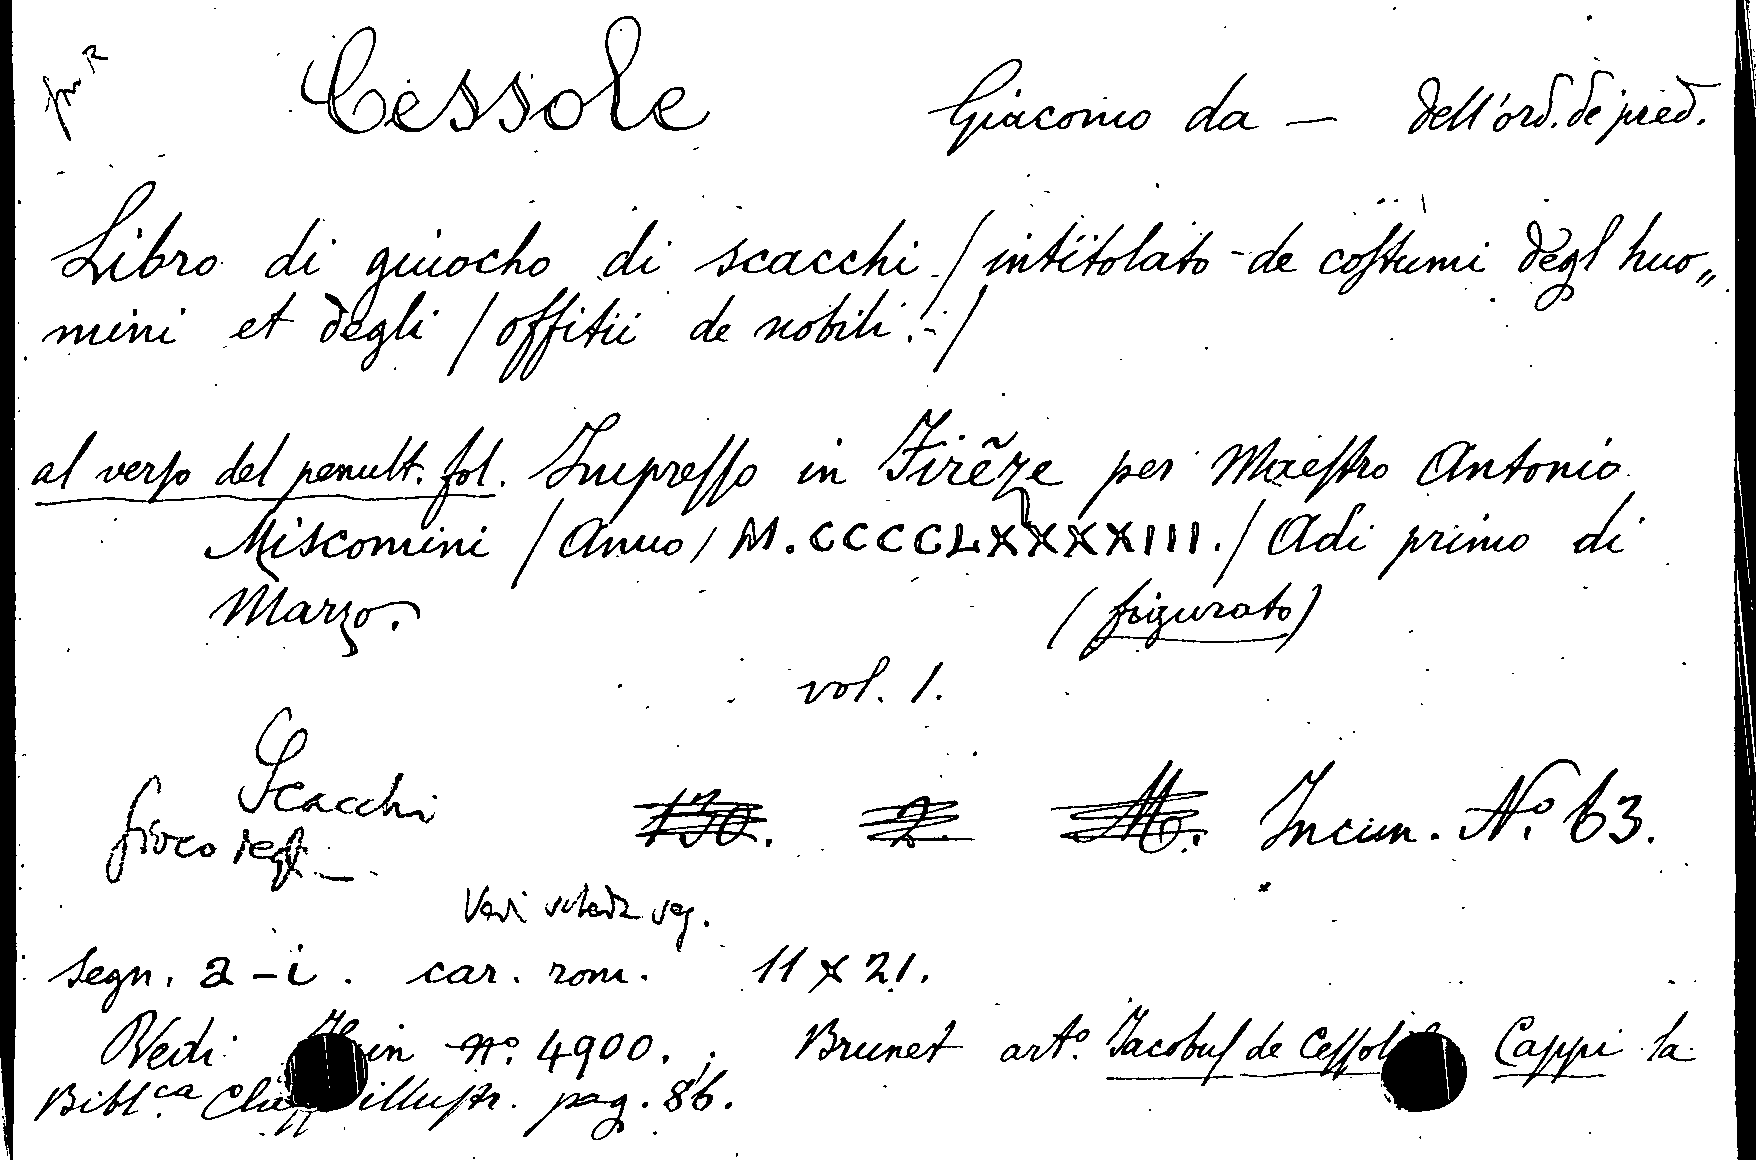 Cessole Giacomo da — dell'ord. de pred.
Libro di giuocho di scacchi / intitolato de coſtumi degl huo„
mini et degli / offitii de nobili. /
al verſo del penult. fol. Impreſſo in Firẽze per Maeſtro Antonio
Miscomini / Anno / M.CCCCLXXXXIII. / Adi primo di
Marzo. (figurato)
vol. 1.
Scacchi
giuoco degli — 130. 2. Mo. Incun. N.º 63.
Vedi scheda seg.
segn. a-i. car. rom. 11 x 21.
Vedi in nº. 4900. ; Brunet artº. Jacobuſ de Ceſſol Cappi la
Bibl.ca illuſtr. pag. 86.